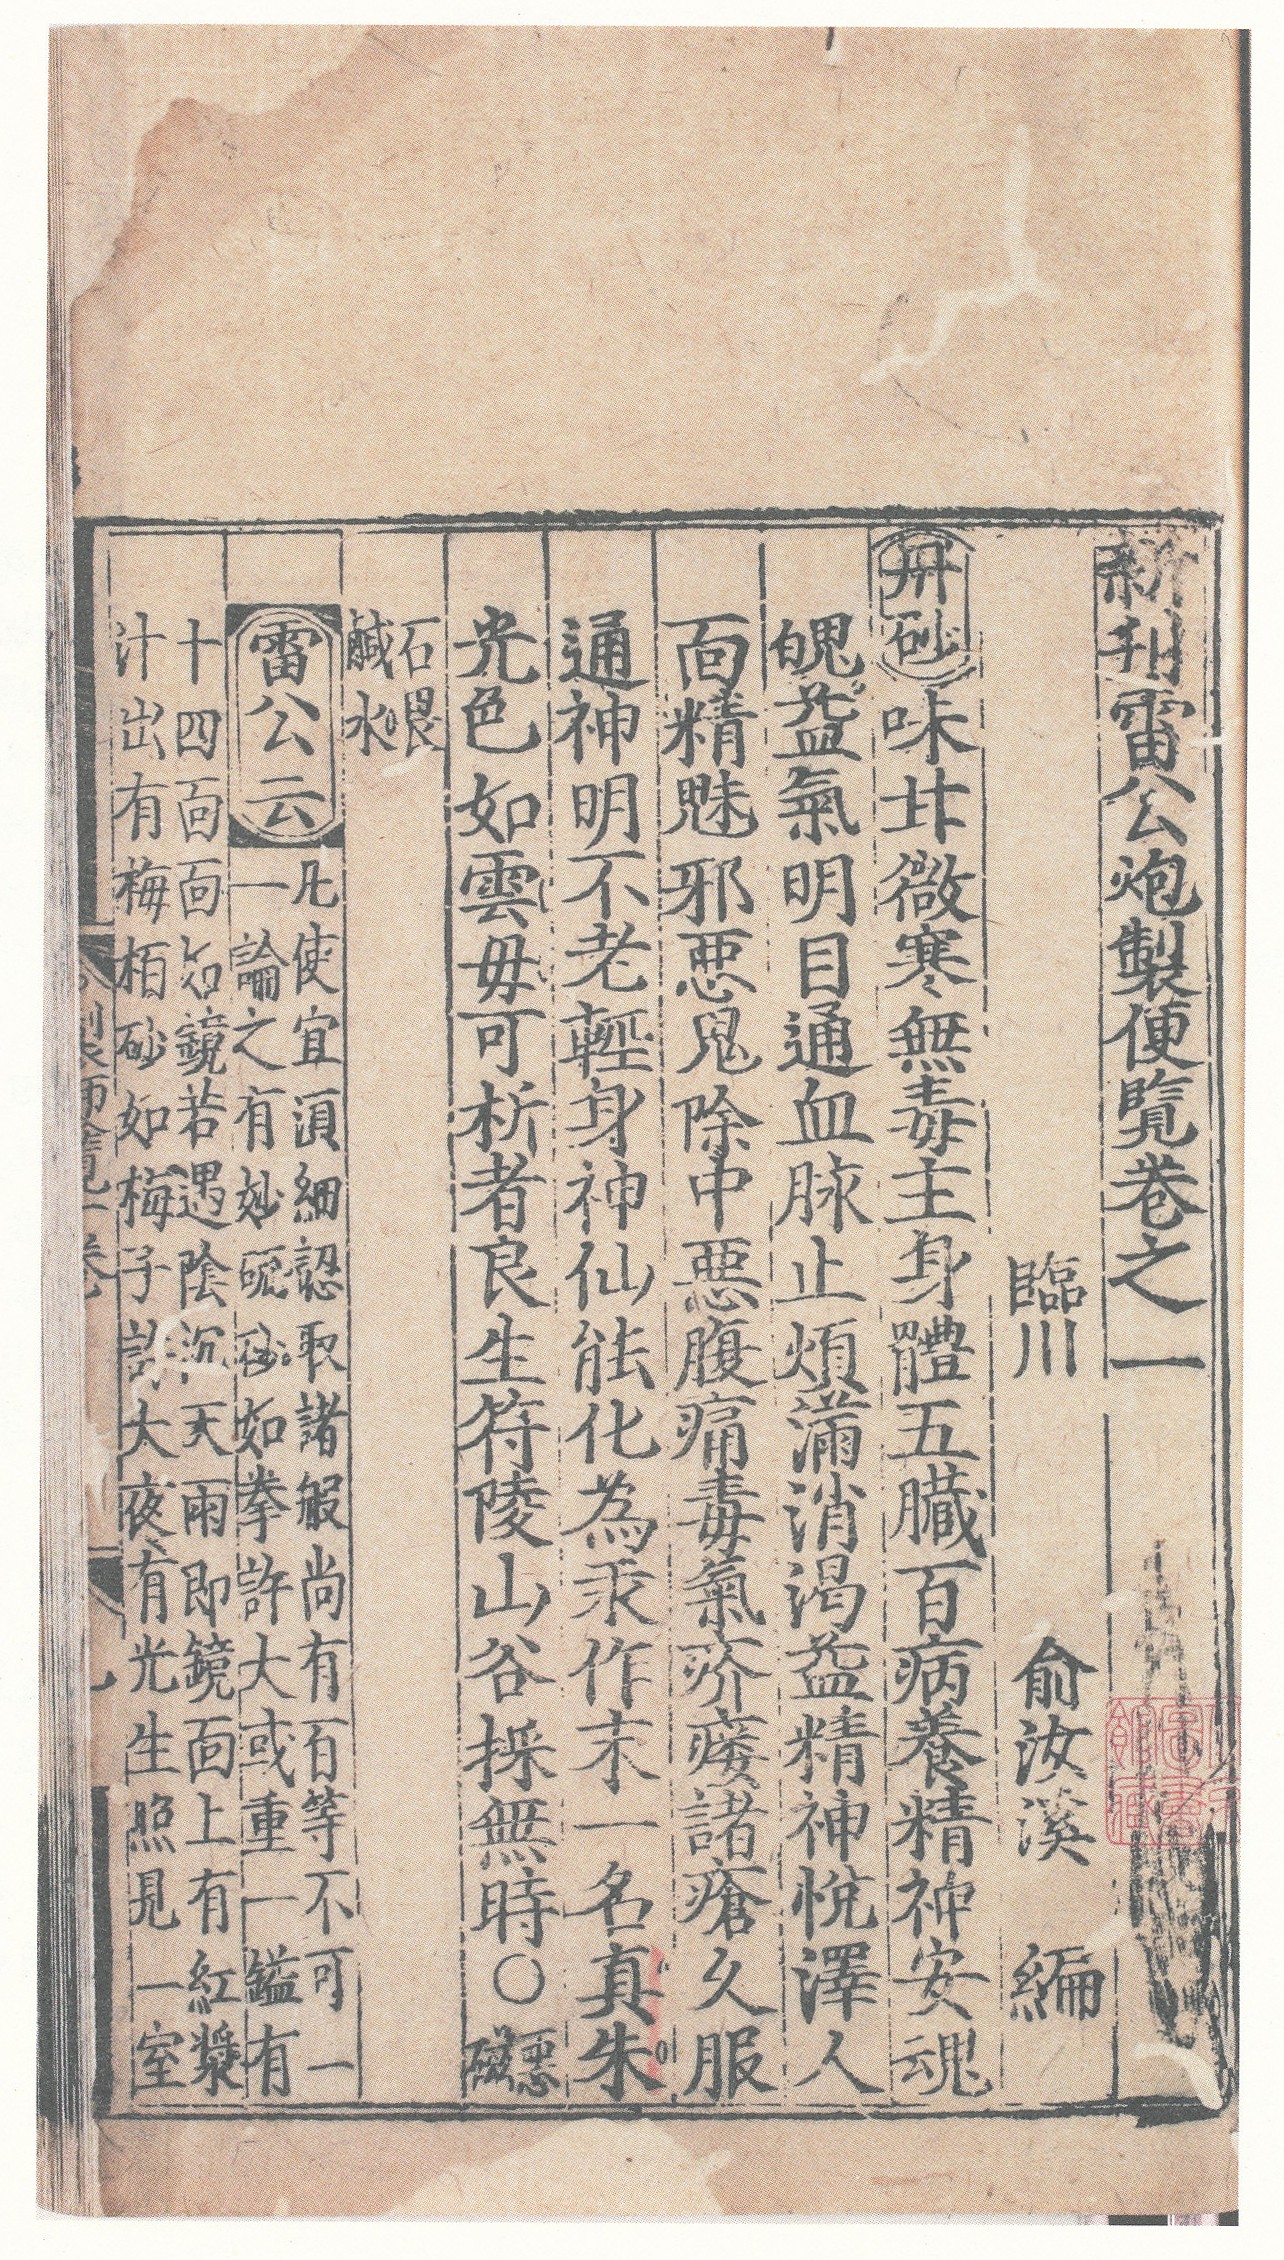 新刋雷公炮製便覽卷之一
臨川 俞汝溪 編
丹砂味甘微寒無毒主身體五臓百病養精神安魂
魄益氣明目通血脉止煩滿消渴益精神恱澤人
面精魅邪惡鬼除中惡腹痛毒氣疥瘻諸瘡久服
通神明不老輕身神仙能化為汞作末一名真朱
光色如雲母可析者良生符陵山谷採無時〇惡磁
石畏
鹹水
雷公云
凡使宜湏細認取諸般尚有百等不可一
一論之有妙硫砂如拳許大或重一鎰有
十四面面如鏡若遇陰沉天雨即鏡面上有紅漿
汁出有梅栢砂如梅子許大夜有光生照見一室